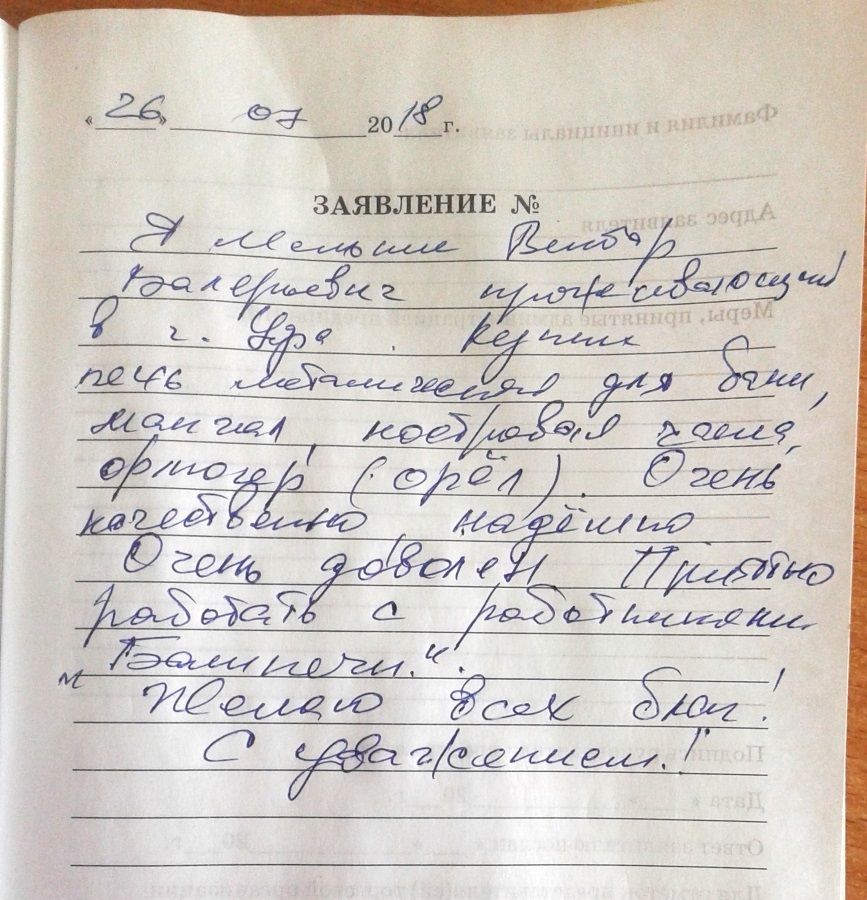 « 26 » 07 2018 г.
ЗАЯВЛЕНИЕ №
Я Мельник Виктор
Валерьевич проживающий
в г. Уфа. купил
печь металическая для бани,
мангал, костровая чаша,
флюгер (орёл). Очень
качественно, надёжно
Очень доволен Приятно
работать с работниками
"Валипечи.".
Желаю всех благ!
С уважением!
Фамилия и инициалы заявителя
Адрес заявителя
Меры, принятые администрацией предпр
Подпись
Дата « » 20 г.
Ответ заявителю послан « » 20 г.